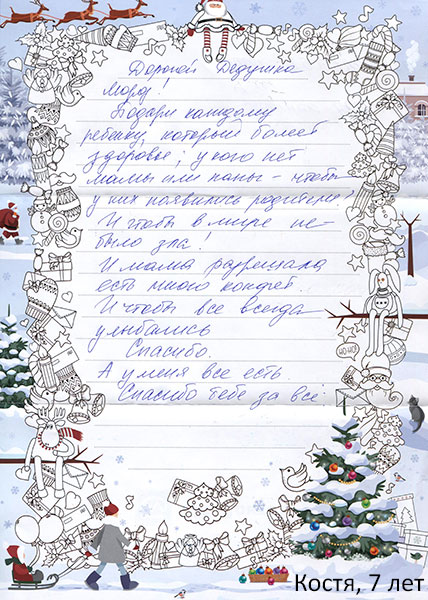 Дорогой Дедушка
Мороз!
Подари каждому
ребенку, который болеет
здоровье; у кого нет
мамы или папы - чтобы
у них появились родители!
И чтобы в мире не
было зла!
И мама разрешала
есть много конфет.
И чтобы все всегда
улыбались
Спасибо.
А у меня все есть.
Спасибо тебе за всё.
HO-HO!
Костя, 7 лет